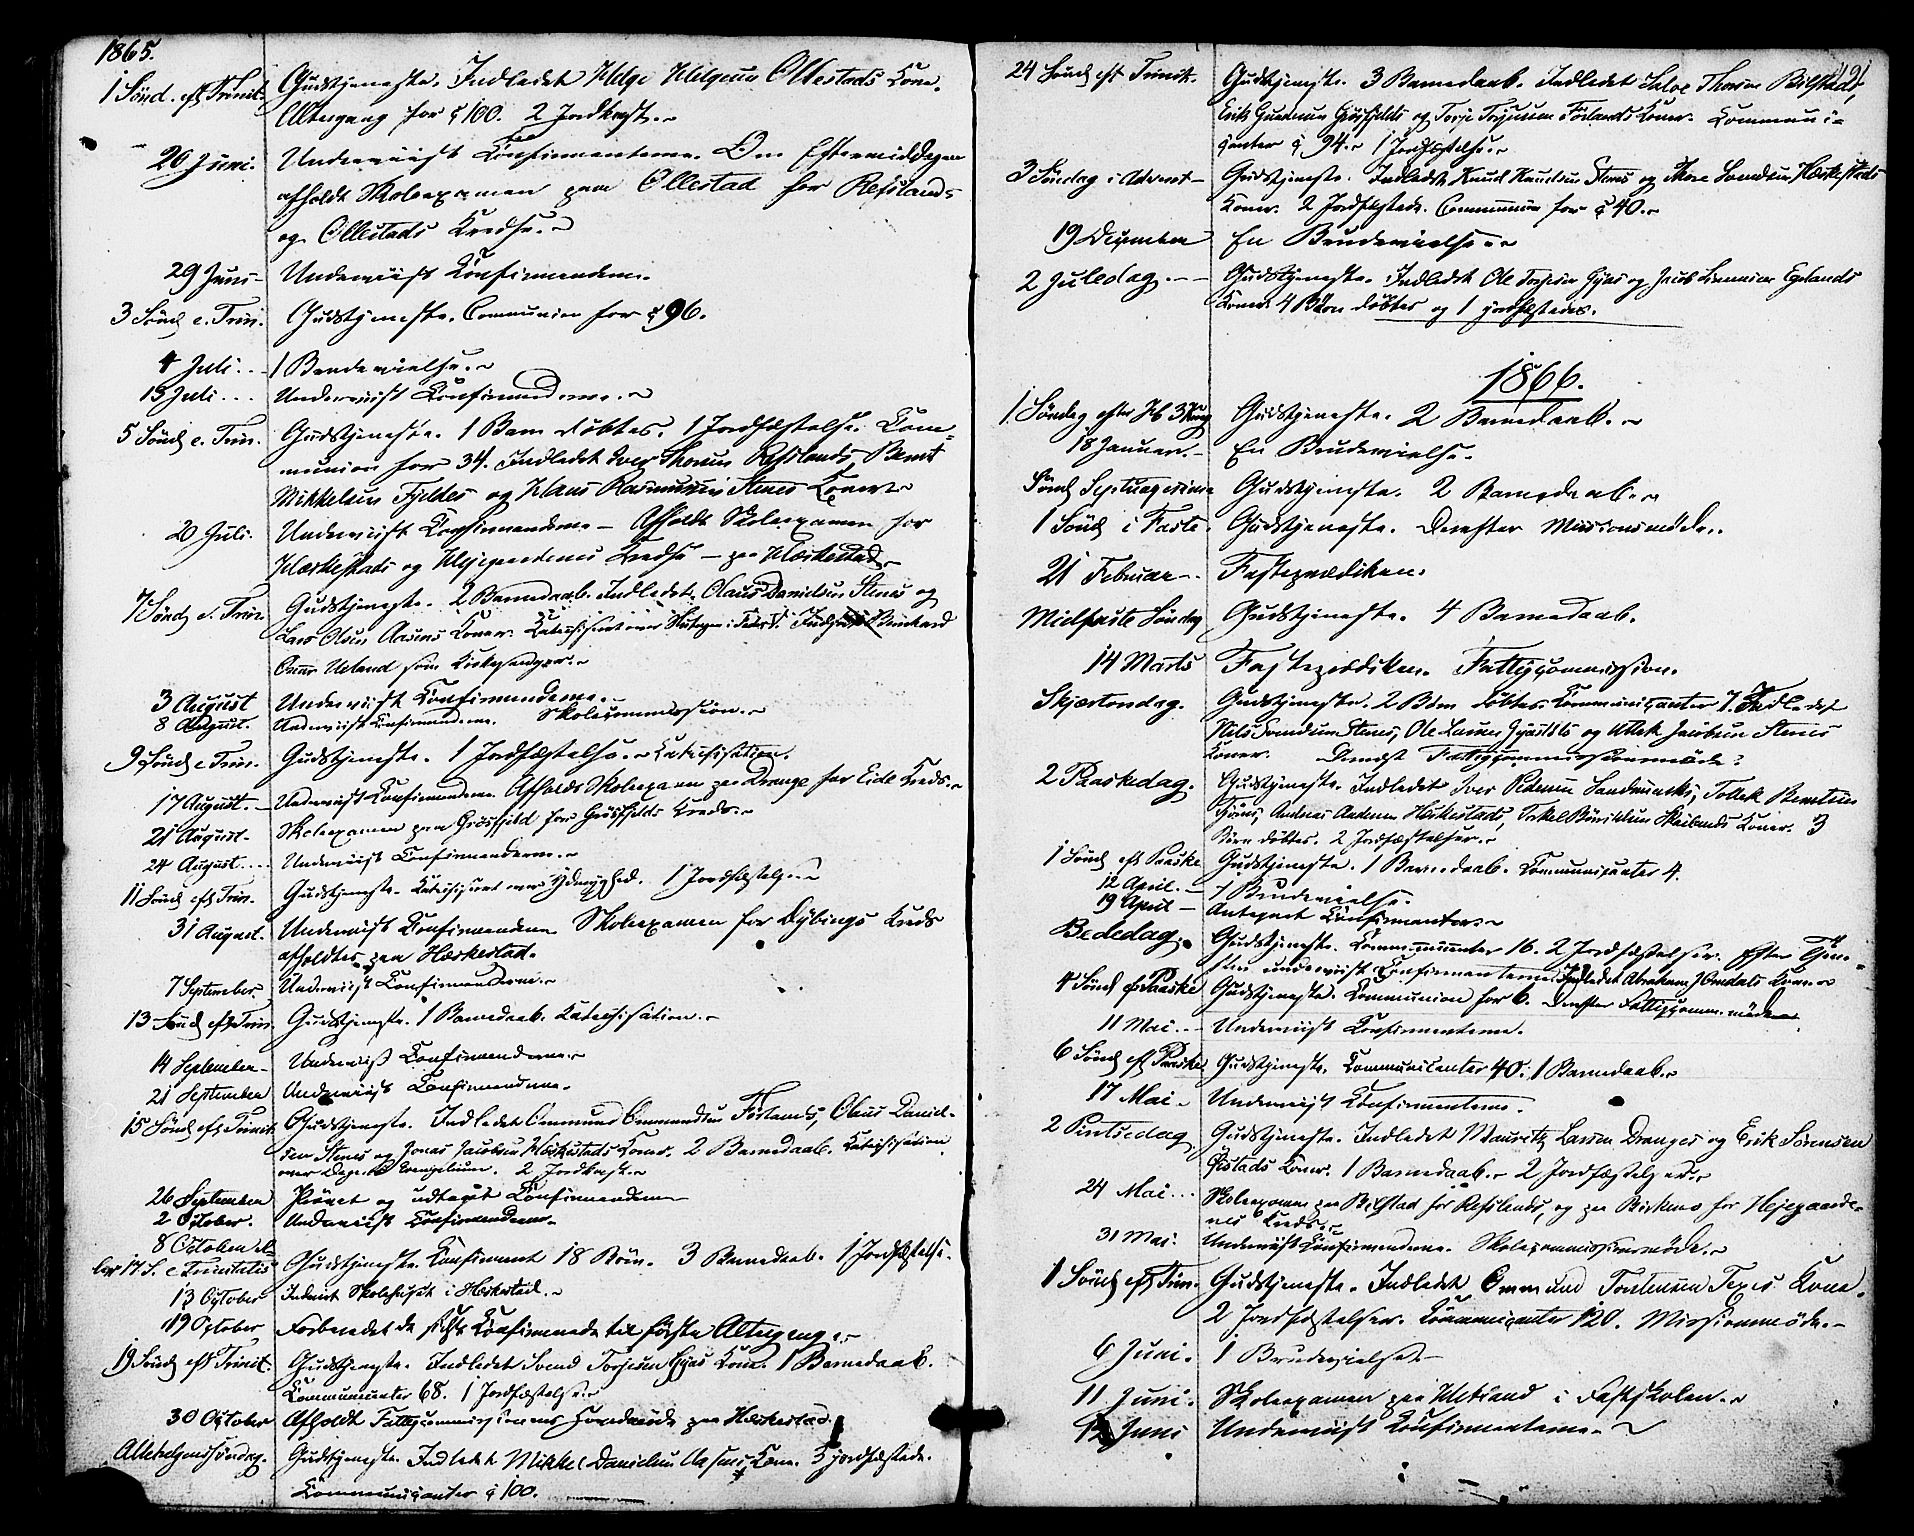 1865.
1 Sönd. eft Trinit. Gudstjeneste. Indledet Helge Helgesen Ollestads Kone.
Altergang for c 100. 2 Jordkast.
26 Juni. Underviist Confirmanterne. Om Eftermiddagen
afholdt Skoleexamen paa Ollestad for Refslands
og Ollestads Kredse.
29 Juni Underviist Confirmanderne.
3 Sönd e. Trin. Gudstjeneste. Communion for c 96.
4 Juli 1 Brudevielse.
13 Juli Underviist Confirmanderne.
5 Sönd e. Trin. Gudstjeneste. 1 Barn döbtes. 1 Jordfæstelse. Com-
munion for 34. Indledet Iver Thorsens Refslands, Bernt
Mikkelsen Fjeldes og Klaus Rasmussen Stenes Koner.
20 Juli. Underviist Confirmanderne – Afholdt Skoleexamen for
Hæskestads og Hejegaardenes Kredse – paa Hæskestad.
7 Sönd e. Trin. Gudstjeneste. 2 Barnedaab. Indledet Claus Danielsen Stenes og
Lars Olsen Aasens Koner. Katechiseret over
Omar Ueland som Kirkesanger.
3 August Underviist Confirmanderne.
8 August. Underviist Confirmanderne. Skolecommission.
9 Sönd e Trin. Gudstjeneste. 1 Jordfæstelse. Katechisation.
17 August. Underviist Confirmanderne. Afholdt Skoleexamen paa Drange for Eide Kreds.
21 August. Skoleexamen paa Grösfjeld for Grösfjelds Kreds.
24 August Underviist Confirmanderne.
11 Sönd eft Trin. Gudstjeneste. Katechiseret over Ydmyghed. 1 Jordfæstelse.
31 August. Underviist Confirmanderne. Skoleexamen for Dybings Kreds
afholdtes paa Hæskestad.
7 September. Underviist Confirmanderne.
13 Sönd eft Trin. Gudstjeneste. 1 Barnedaab. Katechisation.
14 September Underviist Confirmanderne.
21 September Underviist Confirmanderne.
15 Sönd eft Trinit. Gudstjeneste. Indledet Ommund Ommundsen Förlands, Claus Daniel-
sen Stenes og Jonas Jacobsen Hæskestads Koner. 2 Barnedaab. Katechisation
over Dagens Evangelium. 2 Jordkast.
26 September Prövet og udtaget Confirmanderne
2 October. Underviist Confirmanderne.
8 October el-
ler 17 S. e Trinitatis Gudstjeneste. Confirmeret 18 Börn. 3 Barnedaab. 1 Jordfæstelse.
13 October Indviet Skolehuset i Hæskestad.
19 October Forberedet de sidst Confirmerede til förste Altergang.
19 Sönd eft Trinit. Gudstjeneste. Indledet Svend Torjesen Gyas Kone. 1 Barnedaab.
Communicanter 68. 1 Jordfæstelse.
30 October Afholdt Fattigcommissionens Hovedmöde paa Hæskestad.
Allehelgenssöndag. Gudstjeneste. Indledet Mikkel Danielsen Aasens Kone. 3 jordfæstede.
Communicanter c 100.
24 Sönd eft Trinit. Gudstjeneste. 3 Barnedaab. Indledet Salve Thorsen Bilstads,
Erik Gundersen Grösfjelds og Torje Torjesen Förlands Koner. Communi-
canter c 94. 1 Jordfæstelse.
3 Söndag i Advent Gudstjeneste. Indledet Knud Knudsen Stenes og Tore Svendsen Hæskestads
Koner. 2 Jordfæstede. Communion for c 40.
19 December En Brudevielse.
2 Juledag. Gudstjeneste. Indledet Ole Torjesen Gyas og Jacob Egelands
Koner. 4 Börn döbtes og 1 jordfæstedes.
1866.
1. Söndag efter H 3 Kong Gudstjeneste. 2 Barnedaab.
18 Januar. En Brudevielse.
Sönd Septuagesima Gudstjeneste. 2 Barnedaab.
1 Sönd i Faste. Gudstjeneste. Derefter Missionsmöde.
21 Februar Fasteprædiken.
Midfaste Söndag Gudstjeneste. 4 Barnedaab.
14 Marts Fasteprædiken. Fattigcommission.
Skjærtorsdag. Gudstjeneste. 2 Börn döbtes. Communicanter 7. Indledet
Nels Svendsen Stenes, Ole Larsen og Tollek Jacobsen Stenes
Koner. Dernæst Fattigcommissionsmöde.
2 Paaskedag. Gudstjeneste. Indledet Iver Pedersen Sandsmarks, Tollek Berntsen
Andreas Andersen Hæskestads, Torkel Skailands Koner. 3
Börn döbtes. 2 Jordfæstelser.
1 Sönd eft Paaske Gudstjeneste. 1 Barnedaab. Communicanter 4.
12 April. 1 Brudevielse.
19 April Antegnet Confirmanter.
Bededag. Gudstjeneste. Communicanter 16. 2 Jordfæstelser. Efter Tjene-
sten underviist Confirmanterne. Indledet Abraham Omdals Kone.
4 Sönd eft Paaske Gudstjeneste. Communion for 6. Derefter Fattigcomm.möde
11 Mai Underviist Confirmanterne.
6 Sönd eft Paaske Gudstjeneste. Communicanter 40. 1 Barnedaab.
17 Mai Underviist Confirmanterne.
2 Pintsedag Gudstjeneste. Indledet Mauritz Larsen Dranges og Erik Sörensen
Koner. 1 Barnedaab. 2 Jordfæstelser.
24 Mai Skoleexamen paa Bilstad for Refslands, og paa Birkemo for Hejegaarde-
nes Kreds.
31 Mai. Underviist Confirmanderne. Skolecommissionsmöde.
1 Sönd eft Trin. Gudstjeneste. Indledet Ommund Torstensen Kone.
2 Jordfæstelser. Communicanter 120. Missionsmöde.
6 Juni. 1 Brudevielse.
11 Juni. Skoleexamen paa Hetland i Fastskolen.
Juni Underviist Confirmanterne.